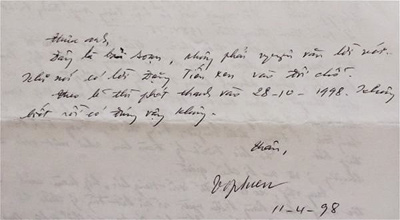 Thưa anh,
Đây là bản soạn, không phải nguyên văn lời nói.
Nhớ nói có lời Đặng Tiến xen vào Đôi chút.
Theo lẽ thì phát thanh vào 28-10-1998. Không
biết rồi có đúng vậy không.
Thân,
11-4-98